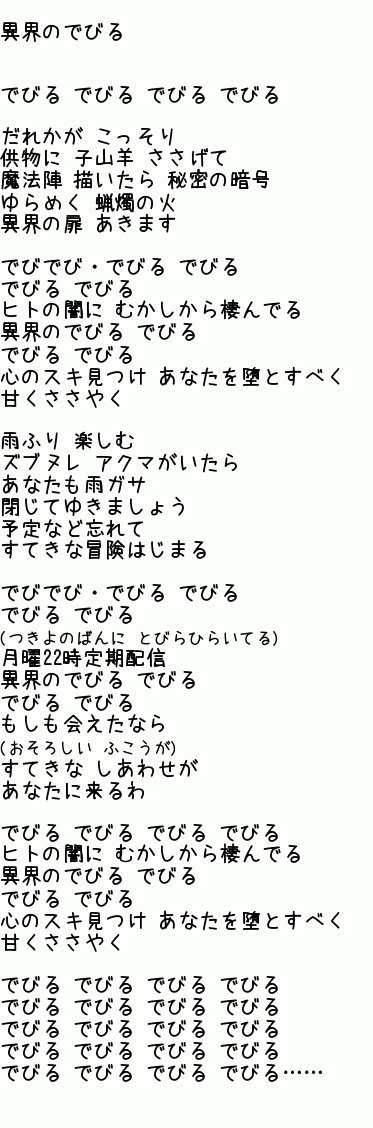 異界のでびる
でびる でびる でびる でびる
だれかが こっそり
供物に 子山羊 ささげて
魔法陣 描いたら 秘密の暗号
ゆらめく 蝋燭の火
異界の扉 あきます
でびでび・でびる でびる
でびる でびる
ヒトの闇に むかしから棲んでる
異界のでびる でびる
でびる でびる
心のスキ見つけ あなたを堕とすべく
甘くささやく
雨ふり 楽しむ
ズブヌレ アクマがいたら
あなたも雨ガサ
閉じてゆきましょう
予定など忘れて
すてきな冒険はじまる
でびでび・でびる でびる
でびる でびる
(つきよのばんに とびらひらいてる)
月曜22時定期配信
異界のでびる でびる
でびる でびる
もしも会えたなら
(おそろしい ふこうが)
すてきな しあわせが
あなたに来るわ
でびる でびる でびる でびる
ヒトの闇に むかしから棲んでる
異界のでびる でびる
でびる でびる
心のスキ見つけ あなたを堕とすべく
甘くささやく
でびる でびる でびる でびる
でびる でびる でびる でびる
でびる でびる でびる でびる
でびる でびる でびる でびる
でびる でびる でびる でびる……